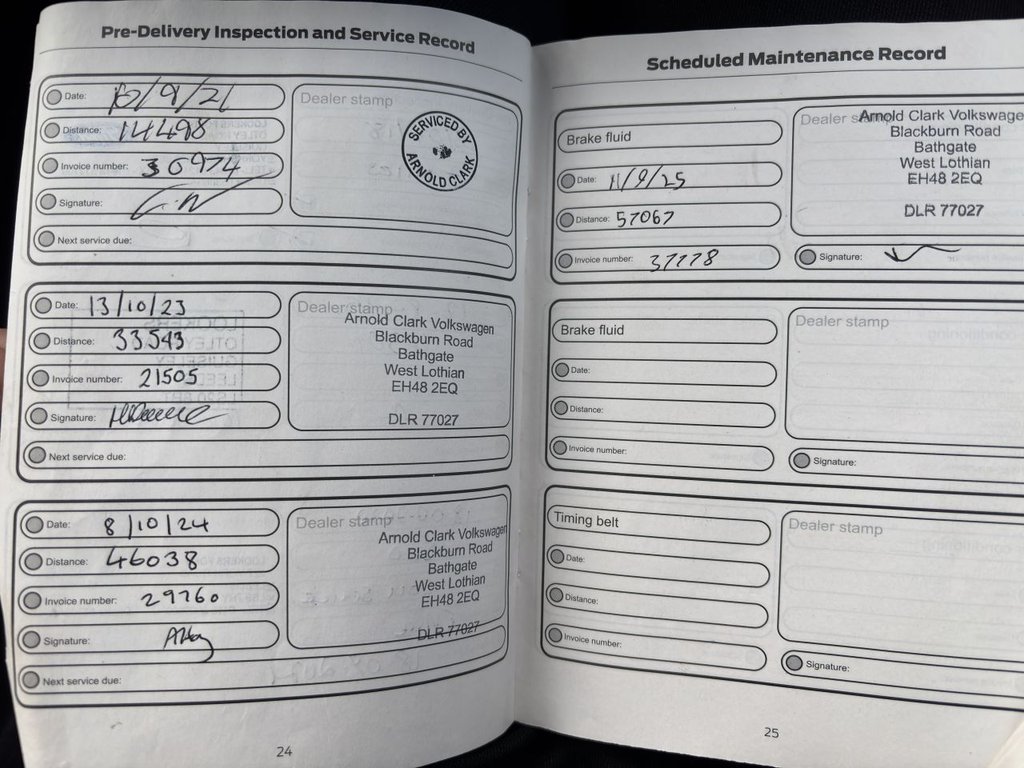 Pre-Delivery Inspection and Service Record
Date: 10/9/21
Distance: 14498
Invoice number: 30974
Signature:
Next service due:
Dealer stamp
SERVICED BY
ARNOLD CLARK
Date: 13/10/23
Distance: 33543
Invoice number: 21505
Signature:
Next service due:
Dealer stamp
Arnold Clark Volkswagen
Blackburn Road
Bathgate
West Lothian
EH48 2EQ
DLR 77027
Date: 8/10/24
Distance: 46038
Invoice number: 29760
Signature:
Next service due:
Dealer stamp
Arnold Clark Volkswagen
Blackburn Road
Bathgate
West Lothian
EH48 2EQ
DLR 77027
24
Scheduled Maintenance Record
Brake fluid
Date: 11/9/25
Distance: 57067
Invoice number: 37778
Dealer stamp
Arnold Clark Volkswage
Blackburn Road
Bathgate
West Lothian
EH48 2EQ
DLR 77027
Signature:
Brake fluid
Date:
Distance:
Invoice number:
Dealer stamp
Signature:
Timing belt
Date:
Distance:
Invoice number:
Dealer stamp
Signature:
25